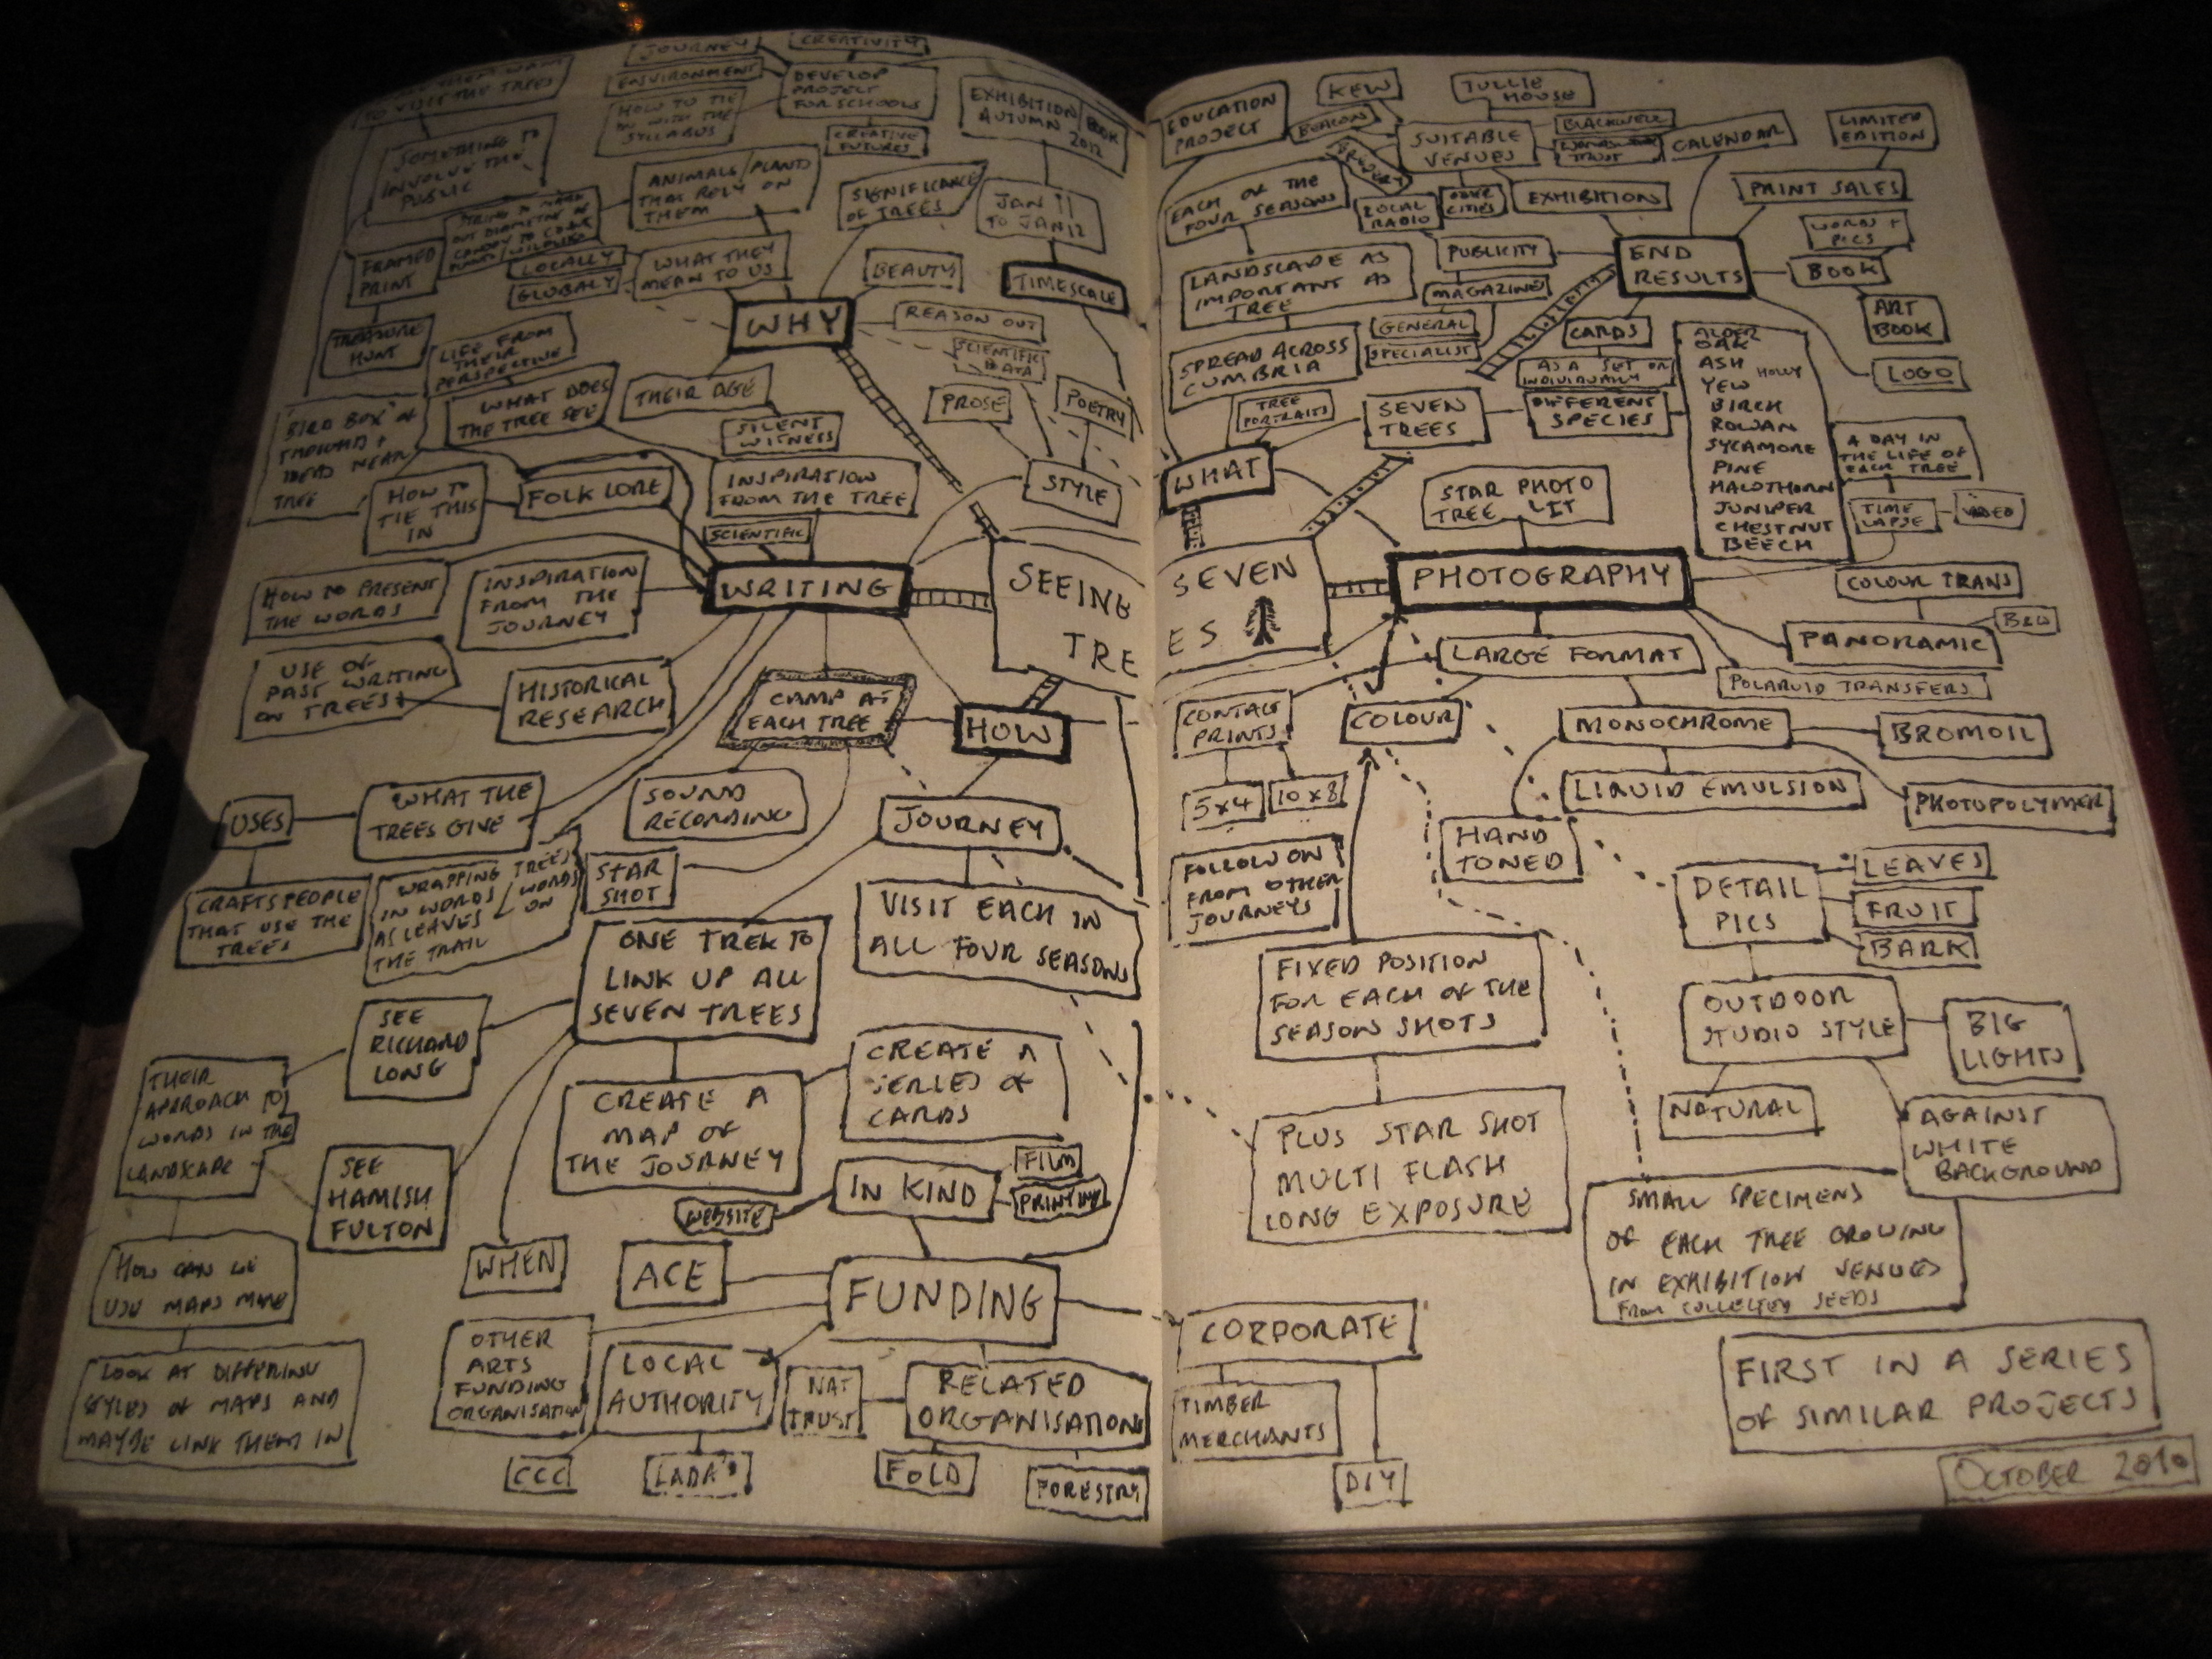 THEM WANT
TO VISIT THE TREES
SOMETHING TO
INVOLVE THE
PUBLIC
JOURNEY
ENVIRONMENT
HOW TO TIE
IN WITH THE
SYLLABUS
CREATIVITY
DEVELOP
PROJECT
FOR SCHOOLS
CREATIVE
FUTURES
EXHIBITION
AUTUMN
BOOK
2012
JAN 11
TO JAN 12
TIMESCALE
ANIMALS/PLANTS
THAT RELY ON
THEM
SIGNIFICANCE
OF TREES
FRAMED
PRINT
TREASURE
HUNT
LOCALLY
GLOBALY
WHAT THEY
MEAN TO US
BEAUTY
WHY
REASON OUT
SCIENTIFIC
DATA
LIFE FROM
THEIR
PERSPECTIVE
WHAT DOES
THE TREE SEE
THEIR AGE
SILENT
WITNESS
PROSE
POETRY
STYLE
"BIRD BOX" OF
IDEAS NEAR
TREE
HOW TO
TIE THIS
IN
FOLK LORE
INSPIRATION
FROM THE TREE
SCIENTIFIC
WRITING
HOW TO PRESENT
THE WORDS
INSPIRATION
FROM THE
JOURNEY
USE OF
PAST WRITING
ON TREES
HISTORICAL
RESEARCH
SEEING SEVEN
TREES
CAMP AT
EACH TREE
HOW
USES
WHAT THE
TREES GIVE
SOUND
RECORDING
JOURNEY
CRAFTSPEOPLE
THAT USE THE
TREES
WRAPPING TREES
IN WORDS / WORDS
AS LEAVES ON
THE TRAIL
STAR
SHOT
VISIT EACH IN
ALL FOUR SEASONS
ONE TREK TO
LINK UP ALL
SEVEN TREES
SEE
RICHARD
LONG
THEIR
APPROACH TO
WORDS IN THE
LANDSCAPE
SEE
HAMISH
FULTON
CREATE A
MAP OF
THE JOURNEY
CREATE A
SERIES OF
CARDS
IN KIND
FILM
PRINTING
WEBSITE
HOW CAN WE
USE MAPS MORE
LOOK AT DIFFERING
STYLES OF MAPS AND
MAYBE LINK THEM IN
WHEN
ACE
FUNDING
OTHER
ARTS
FUNDING
ORGANISATIONS
LOCAL
AUTHORITY
NAT
TRUST
RELATED
ORGANISATIONS
CCC
LADA'S
FOLD
FORESTRY
EDUCATION
PROJECT
KEW
BEACON
BREWERY
TULLIE
HOUSE
SUITABLE
VENUES
BLACKWELL
WORDSWORTH
TRUST
CALENDAR
LIMITED
EDITION
EACH OF THE
FOUR SEASONS
LOCAL
RADIO
OTHER
CITIES
EXHIBITION
PRINT SALES
LANDSCAPE AS
IMPORTANT AS
TREE
PUBLICITY
MAGAZINES
GENERAL
SPECIALIST
END
RESULTS
WORDS +
PICS
BOOK
ART
BOOK
CARDS
AS A SET OR
INDIVIDUALLY
LOGO
SPREAD ACROSS
CUMBRIA
TREE
PORTRAITS
SEVEN
TREES
DIFFERENT
SPECIES
ALDER
OAK
ASH
HOLLY
YEW
BIRCH
ROWAN
SYCAMORE
PINE
HAWTHORN
JUNIPER
CHESTNUT
BEECH
A DAY IN
THE LIFE OF
EACH TREE
TIME
LAPSE
VIDEO
WHAT
STAR PHOTO
TREE LIT
PHOTOGRAPHY
COLOUR TRANS
B&W
PANORAMIC
LARGE FORMAT
POLAROID TRANSFERS
CONTACT
PRINTS
5x4
10x8
COLOUR
MONOCHROME
BROMOIL
LIQUID EMULSION
PHOTOPOLYMER
HAND
TONED
FOLLOW ON
FROM OTHER
JOURNEYS
DETAIL
PICS
LEAVES
FRUIT
BARK
FIXED POSITION
FOR EACH OF THE
SEASON SHOTS
OUTDOOR
STUDIO STYLE
BIG
LIGHTS
NATURAL
AGAINST
WHITE
BACKGROUND
PLUS STAR SHOT
MULTI FLASH
LONG EXPOSURE
SMALL SPECIMENS
OF EACH TREE GROWING
IN EXHIBITION VENUES
FROM COLLECTED SEEDS
CORPORATE
TIMBER
MERCHANTS
DIY
FIRST IN A SERIES
OF SIMILAR PROJECTS
OCTOBER 2010